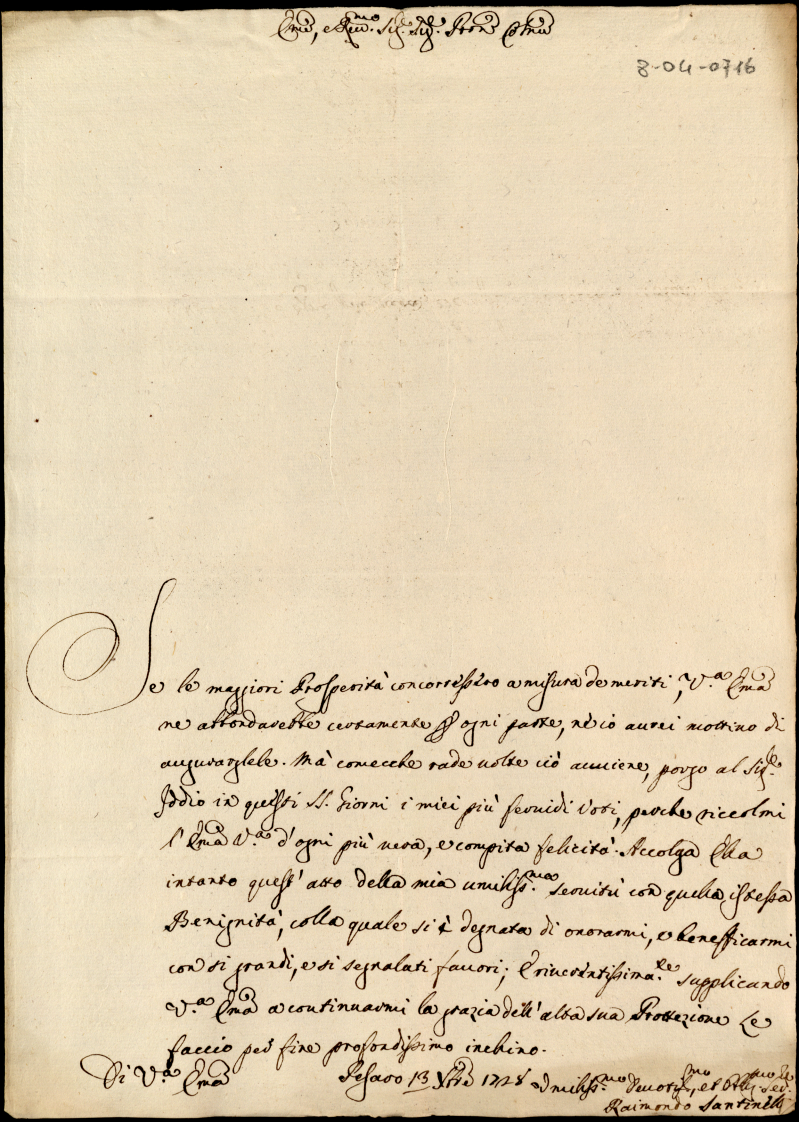 Emo, e Rev.mo Sig.r Sig.r Pron Colmo
8-04-0716
Se le maggiori Prosperità concorressero a misura de meriti, V.a Ema
ne abbondarebbe certamente per ogni parte, nè io aurei mottino di
augurarglele. Mà comecche rade uolte ciò auuiene, porgo al Sig.re
Iddio in questi SS. Giorni i miei più feruidi Voti, perche riccolmi
l'Ema V.a d'ogni più uera, e compita felicità. Accolga Ella
intanto quest'atto della mia umiliss.ma seruitù con quella istessa
Benignità, colla quale si è degnata di onorarmi, e benefficarmi
con si grandi, e si segnalati fauori; E riuerentissima.te supplicando
V.a Ema a continuarmi la grazia dell'alta sua Protezione Le
faccio per fine profondissimo inchino.
Di V.a Ema
Pesaro 13 Xbre 1728
Umiliss.mo Deuotis.mo, et Obl.mo Ser.
Raimondo Santinelli